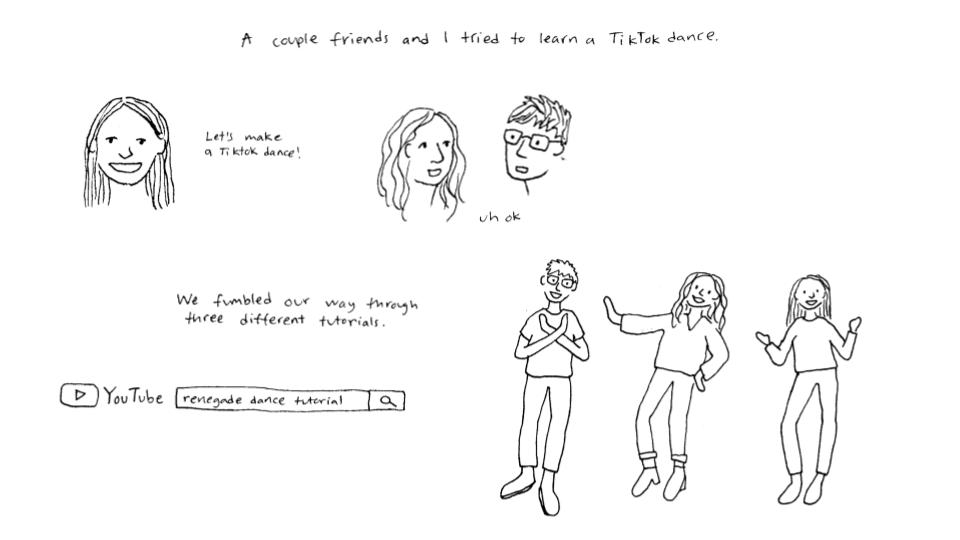 A couple friends and I tried to learn a TikTok dance.
Let's make
a Tiktok dance!
uh ok
We fumbled our way through
three different tutorials.
YouTube renegade dance tutorial